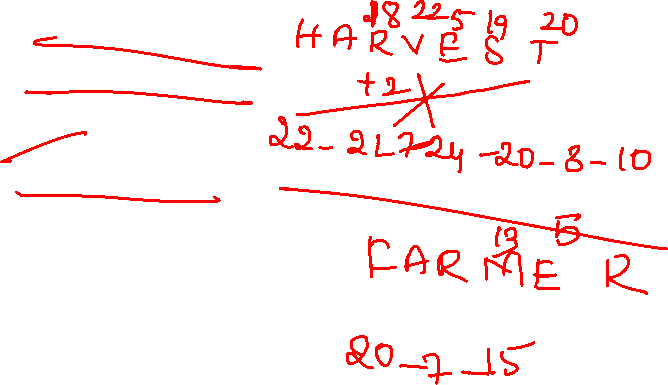 18 22 5 19 20
HARVEST
+2
22-21 7 24-20-8-10
13 5
FARMER
20-7-15